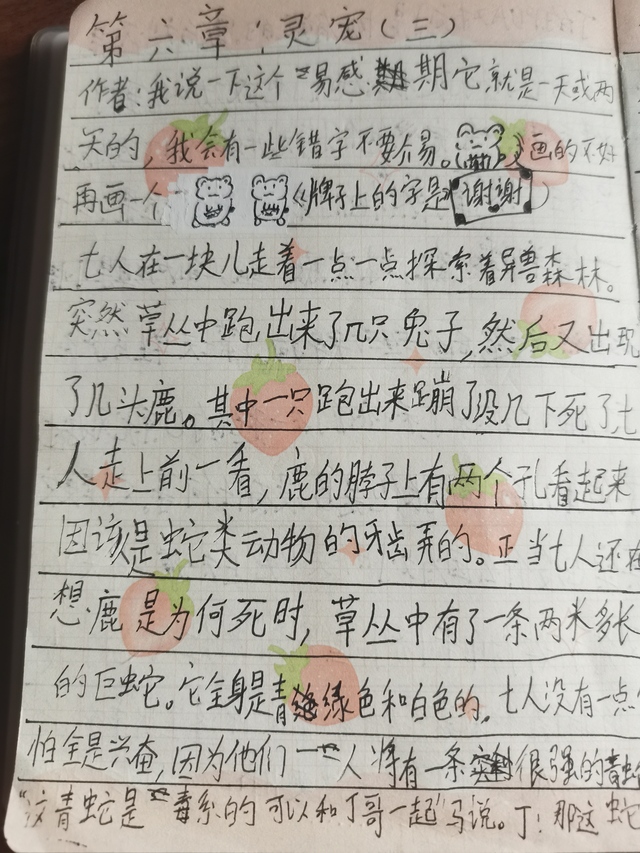 第六章:灵宠(三)
作者:我说一下这个“易感期它就是一天或两
天的,我会有一些错字不要介易。画的不好
再画一个《牌子上的字是谢谢)
七人在一块儿走着一点一点探索着异兽森林。
突然草丛中跑出来了几只兔子,然后又出现
了几头鹿。其中一只跑出来蹦了没几下死了七
人走上前一看,鹿的脖子上有两个孔看起来
因该是蛇类动物的牙齿弄的。正当七人还在
想鹿是为何死时,草丛中有了一条两米多长
的巨蛇。它全身是青绿色和白色的。七人没有一点
怕全是兴奋,因为他们一人将有一条很强的青蛇
“这青蛇是毒系的可以和丁哥一起”马说。丁:那这蛇